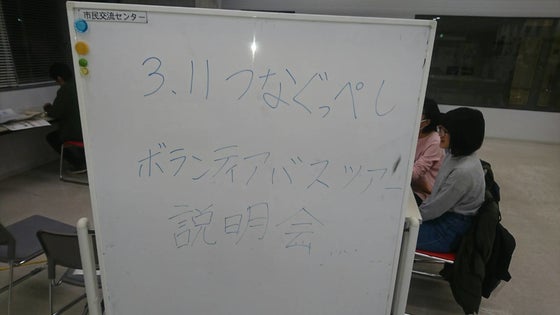 市民交流センター
3.11つなぐっぺし
ボランティアバスツアー
説明会....